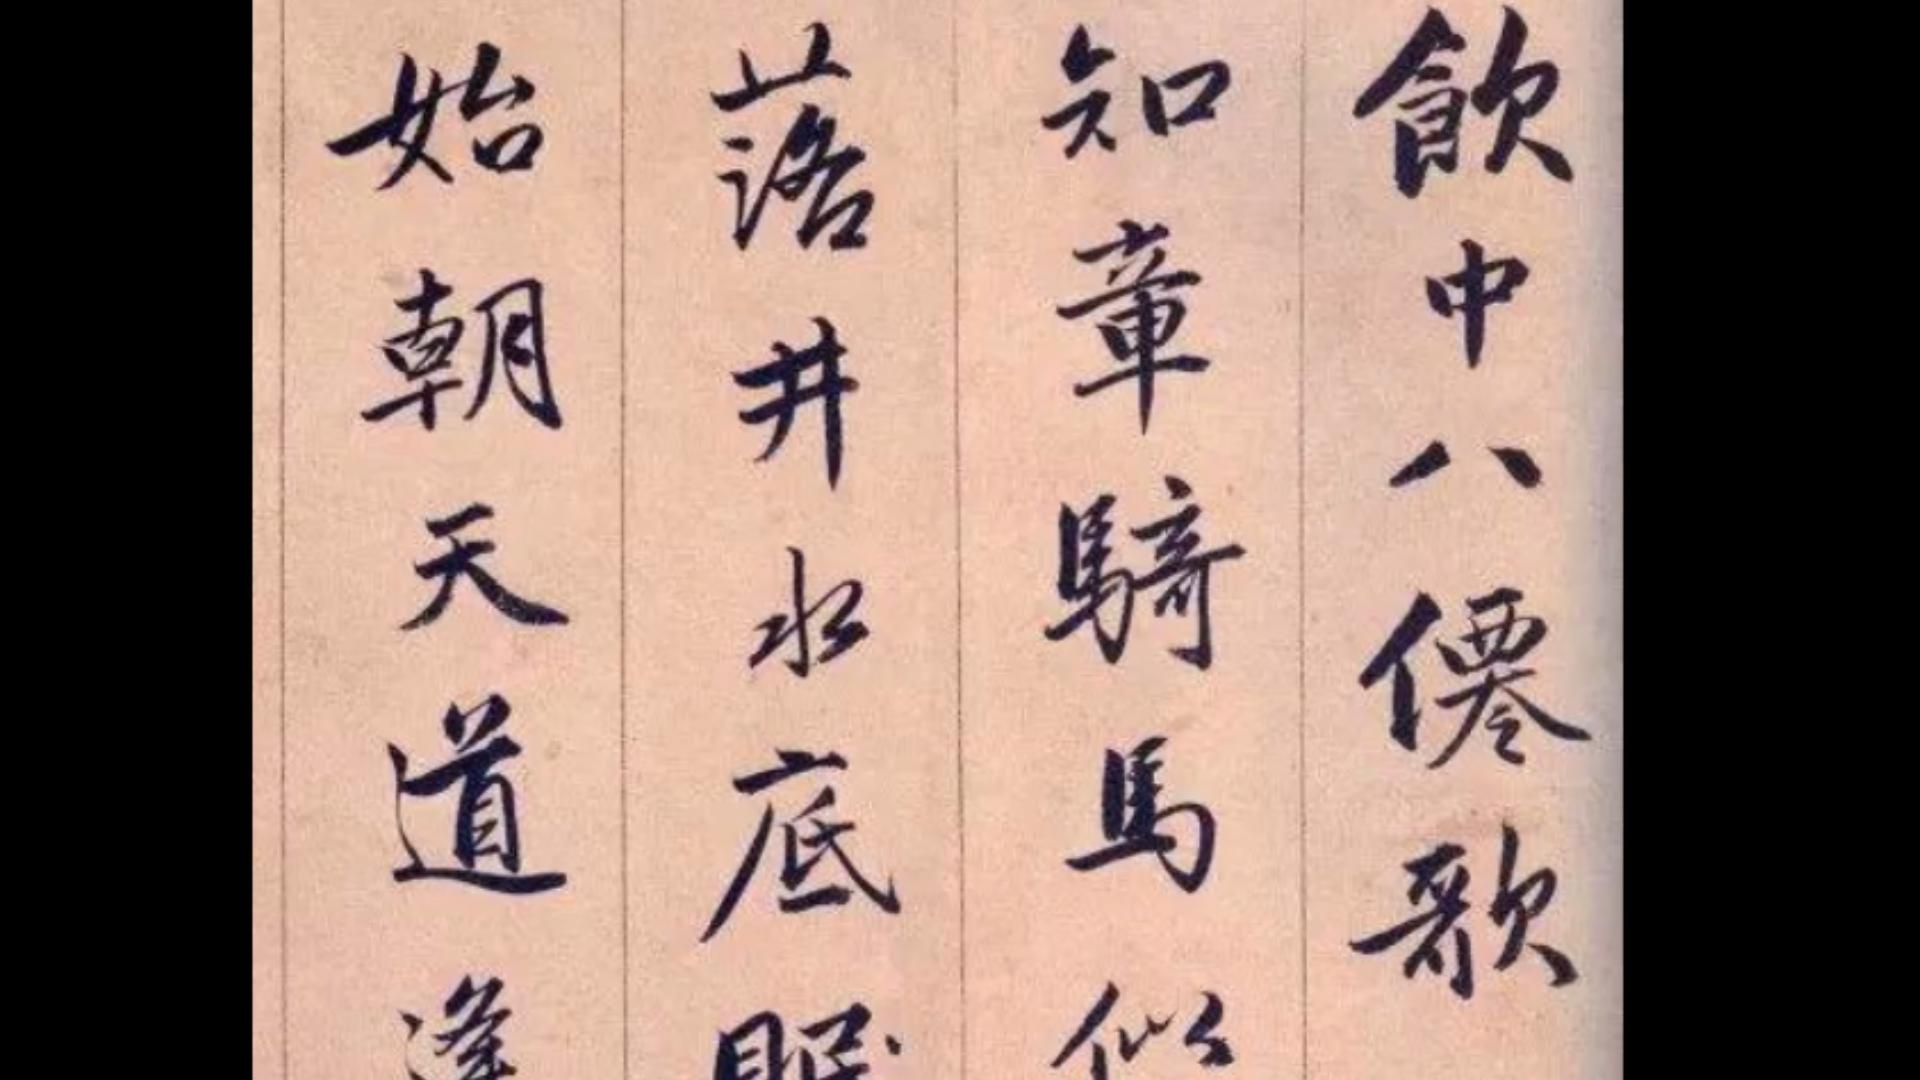 飲中八僊歌
知章騎馬似
落井水底眠
始朝天道逢